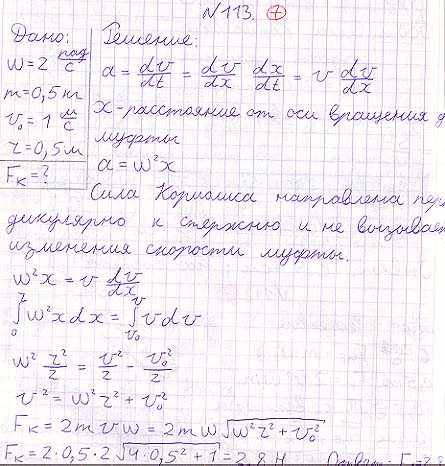 №113. +
Дано: Решение:
w = 2 рад/с
m = 0,5 кг
v₀ = 1 м/с
r = 0,5 м
Fк = ?
a = dv/dt = dv/dx dx/dt = v dv/dx
x - расстояние от оси вращения д
муфты
a = w²x
Сила Кориолиса направлена пер
дикулярно к стержню и не вызывает
изменения скорости муфты.
w²x = v dv/dx
∫₀ʳ w²x dx = ∫ᵥ₀ᵛ v dv
w² r²/2 = v²/2 - v₀²/2
v² = w²r² + v₀²
Fк = 2mvw = 2mw√(w²r² + v₀²)
Fк = 2·0,5·2√(4·0,5² + 1) = 2,8 Н Ответ: F=2,8